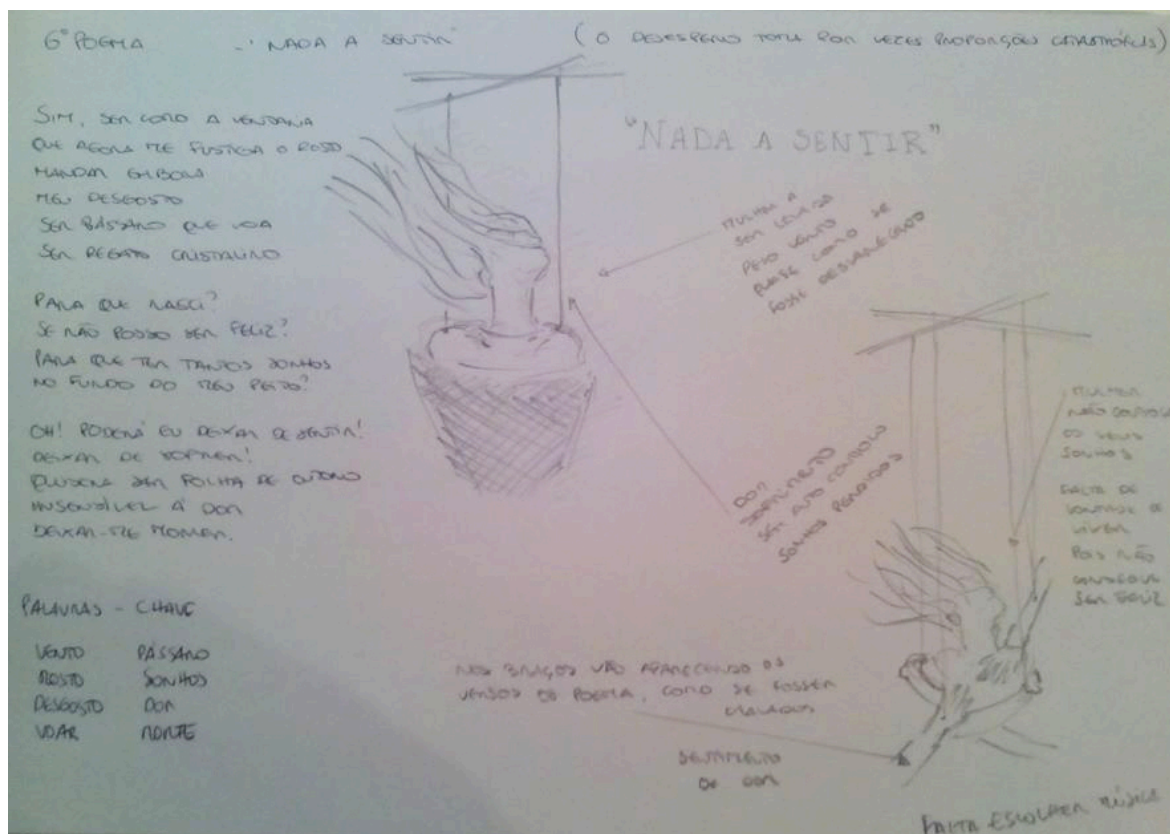 6º POEMA - "NADA A SENTIR" (O DESESPERO TOMA POR VEZES PROPORÇÃO CATASTRÓFICAS)
SIM, SER COMO A VENTANIA
QUE AGORA ME FUSTIGA O ROSTO
MANDAR EMBORA
MEU DESGOSTO
SER PÁSSARO QUE VOA
SER REGATO CRISTALINO
PARA QUE NASCI?
SE NÃO POSSO SER FELIZ?
PARA QUE TER TANTOS SONHOS
NO FUNDO DO MEU PEITO?
OH! PODERÁ EU DEIXAR DE SENTIR!
DEIXAR DE SOFRER!
SER FOLHA DE OUTONO
INSENSÍVEL À DOR
DEIXAR-ME MORRER.
PALAVRAS - CHAVE
VENTO PÁSSARO
ROSTO SONHOS
DESGOSTO DOR
VOAR MORTE
"NADA A SENTIR"
MULHER A
SER LEVADA
PELO VENTO
QUASE COMO SE
FOSSE
DOR
SOFRIMENTO
SEM AUTO CONTROLO
SONHOS PERDIDOS
MULHER
NÃO CONTROLA
OS SEUS
SONHOS
FALTA DE
VONTADE DE
VIVER
POIS NÃO
CONSEGUE
SER FELIZ
NOS BRAÇOS VÃO APARECENDO OS
VERSOS DO POEMA, COMO SE FOSSEM
CRAVADOS
SENTIMENTO
DE DOR
FALTA ESCOLHER MÚSICA